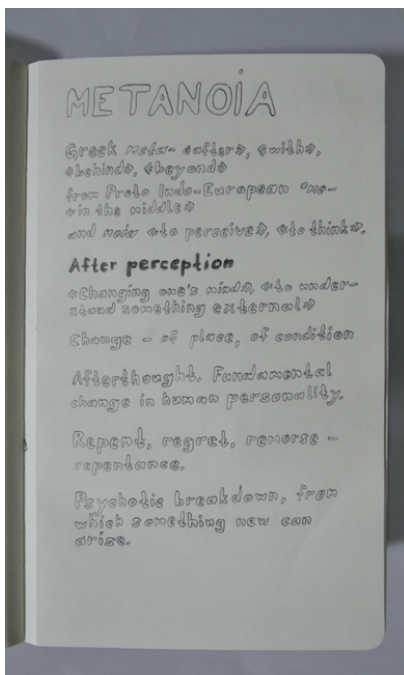 METANOIA
Greek meta- «after», «with»,
«behind», «beyond»
from Proto Indo-European *me-
«in the middle»
and noiw «to perceive», «to think».
After perception
«Changing one's mind», «to under-
stand something external»
Change – of place, of condition
Afterthought. Fundamental
change in human personality.
Repent, regret, remorse –
repentance.
Psychotic breakdown, from
which something new can
arise.